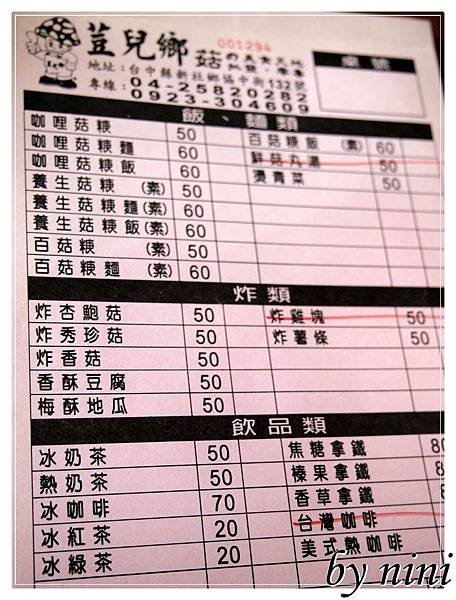 荳兒鄉 菇の美食天地 001294 桌號
地址:台中縣新社鄉協中街132號
專線:04-25820282
0923-304609
飯、麵類
咖哩菇粳 50 百菇粳飯 (素) 60
咖哩菇粳麵 60 鮮菇丸湯 50
咖哩菇粳飯 60 燙青菜 50
養生菇粳 (素) 50
養生菇粳麵(素) 60
養生菇粳飯(素) 60
百菇粳 (素) 50
百菇粳麵 (素) 60
炸類
炸杏鮑菇 50 炸雞塊 50
炸秀珍菇 50 炸薯條 50
炸香菇 50
香酥豆腐 50
梅酥地瓜 50
飲品類
冰奶茶 50 焦糖拿鐵
熱奶茶 50 榛果拿鐵
冰咖啡 70 香草拿鐵
冰紅茶 20 台灣咖啡
冰綠茶 20 美式熱咖啡
by nini